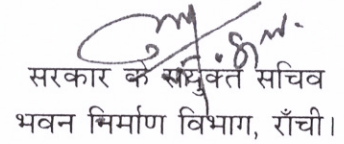 सरकार के संयुक्त सचिव
भवन निर्माण विभाग, राँची।